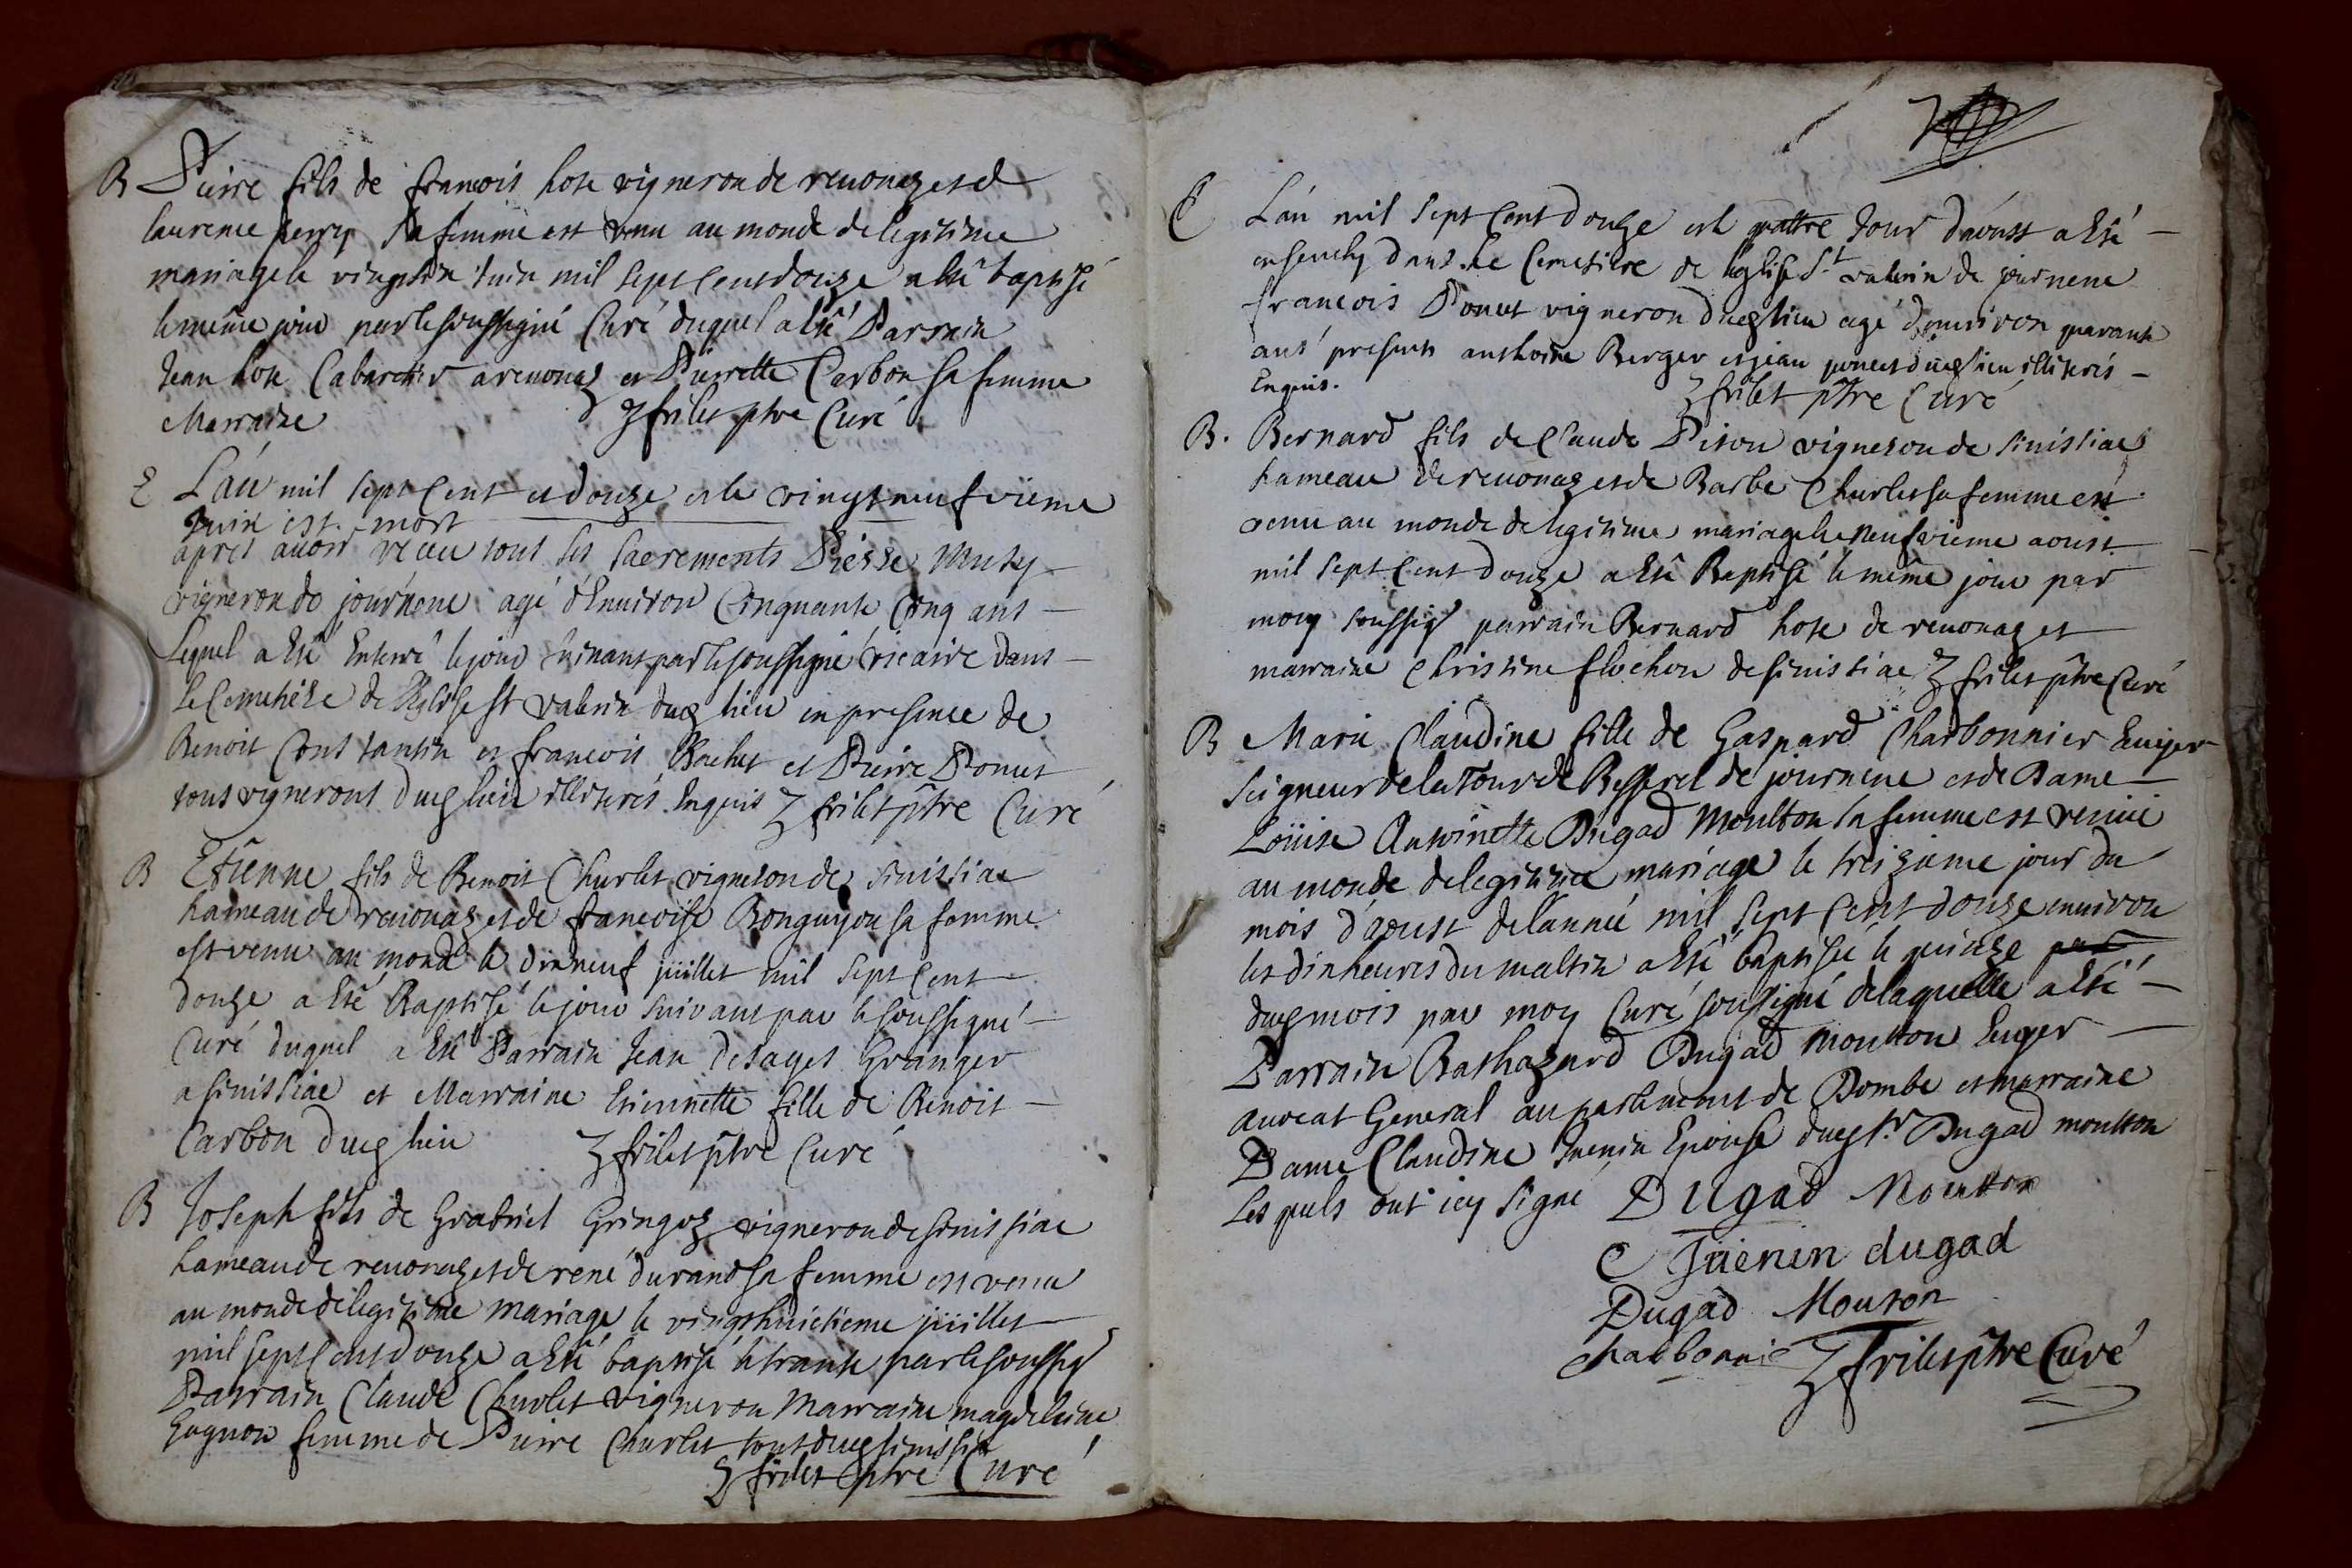 B Pierre fils de francois hose vigneron de reuonaz et de
laurence perry sa femme est venu au monde de legitime
mariage le vingtsix Juin mil sept cent douze a esté baptisé
le même jour par le soussigné Curé duquel a esté Parrain
Jean hose Cabaretier a reuonaz et Pierrette Carbon sa femme
Marraine J frilet ptre Curé
E L'an mil sept cent et douze et le vingt neufvieme
Juin est mort
apres auoir receu tous les sacrements Pierre Musy
vigneron de journene agé d'Enuiron Cinquante Cinq ans
Lequel a Esté Enterré le jour suivant par le soussigné vicaire dans
le Cemetiére de l'Eglise St valerin dud lieu en presence de
Benoit Constantin et francois Bachet et Pierre Ponut
tous vignerons dud lieu illiterés Enquis J frilet ptre Curé
B Etienne fils de Benoit Churlet vigneron de sinissiac
hameau de reuonaz et de francoise Bonguyon sa femme
est venu au monde le dixneuf juillet mil sept cent
douze a esté Baptisé le jour suivant par le soussigné
Curé duquel a esté Parrain Jean Desages Granger
a sinissiac et Marraine Etiennette fille de Benoit
Carbon dud lieu J frilet ptre Curé
B Joseph fils de Grabriel Gringoz vigneron de sinissiac
hameau de reuonaz et de rené durand sa femme est venu
au monde de legitime Mariage le vingthuictieme juillet
mil sept cent douze a esté baptisé le trante par le soussig
Parrain Claude Churlet vigneron Marraine magdelaine
Gagnon femme de Pierre Churlet tous dud sinissia
J frilet ptre Curé
E L'an mil sept Cent douze et le quattre Jour d'aoust a Esté
enseuely dans le Cemetiere de l'eglise St valerin de journene
francois Ponut vigneron dud lieu agé d'enuiron quarante
ans presents anthoine Berger et jean ponut dud lieu illiterés
Enquis. J frilet ptre Curé
B. Bernard fils de Claude Pison vigneron de sinissiac
hameau de reuonaz et de Barbe Churlet sa femme est
venu au monde de legitime mariage le Neufvieme aoust
mil sept Cent douze a Esté Baptisé le même jour par
moy soussig parrain Bernard hose de reuonaz et
marraine Christine flochon de sinissiac J frilet ptre Curé
B Marie Claudine fille de Gaspard Charbonnier Euijer
Seigneur de la Tour de Besserel de journene et de Dame
Loüise Antoinette Dugad Moulton sa femme est venüe
au monde de legitime mariage le treizieme jour du
mois d'aoust de l'année mil sept Cent douze enuiron
les dix heures du mattin a Esté baptisée le quinze par
dud mois par moy Curé soussigné de laquelle a Esté
Parrain Bathazard Dugad Moulton Euyer
Auocat General au parlement de Dombe et marraine
Dame Claudine Juenin Epouse dud Sr Dugad moulton
Lesquels ont icy Signé Dugad Moulton
C Jüenin dugad
Dugad Mouton
charbonnie J frilet ptre Curé